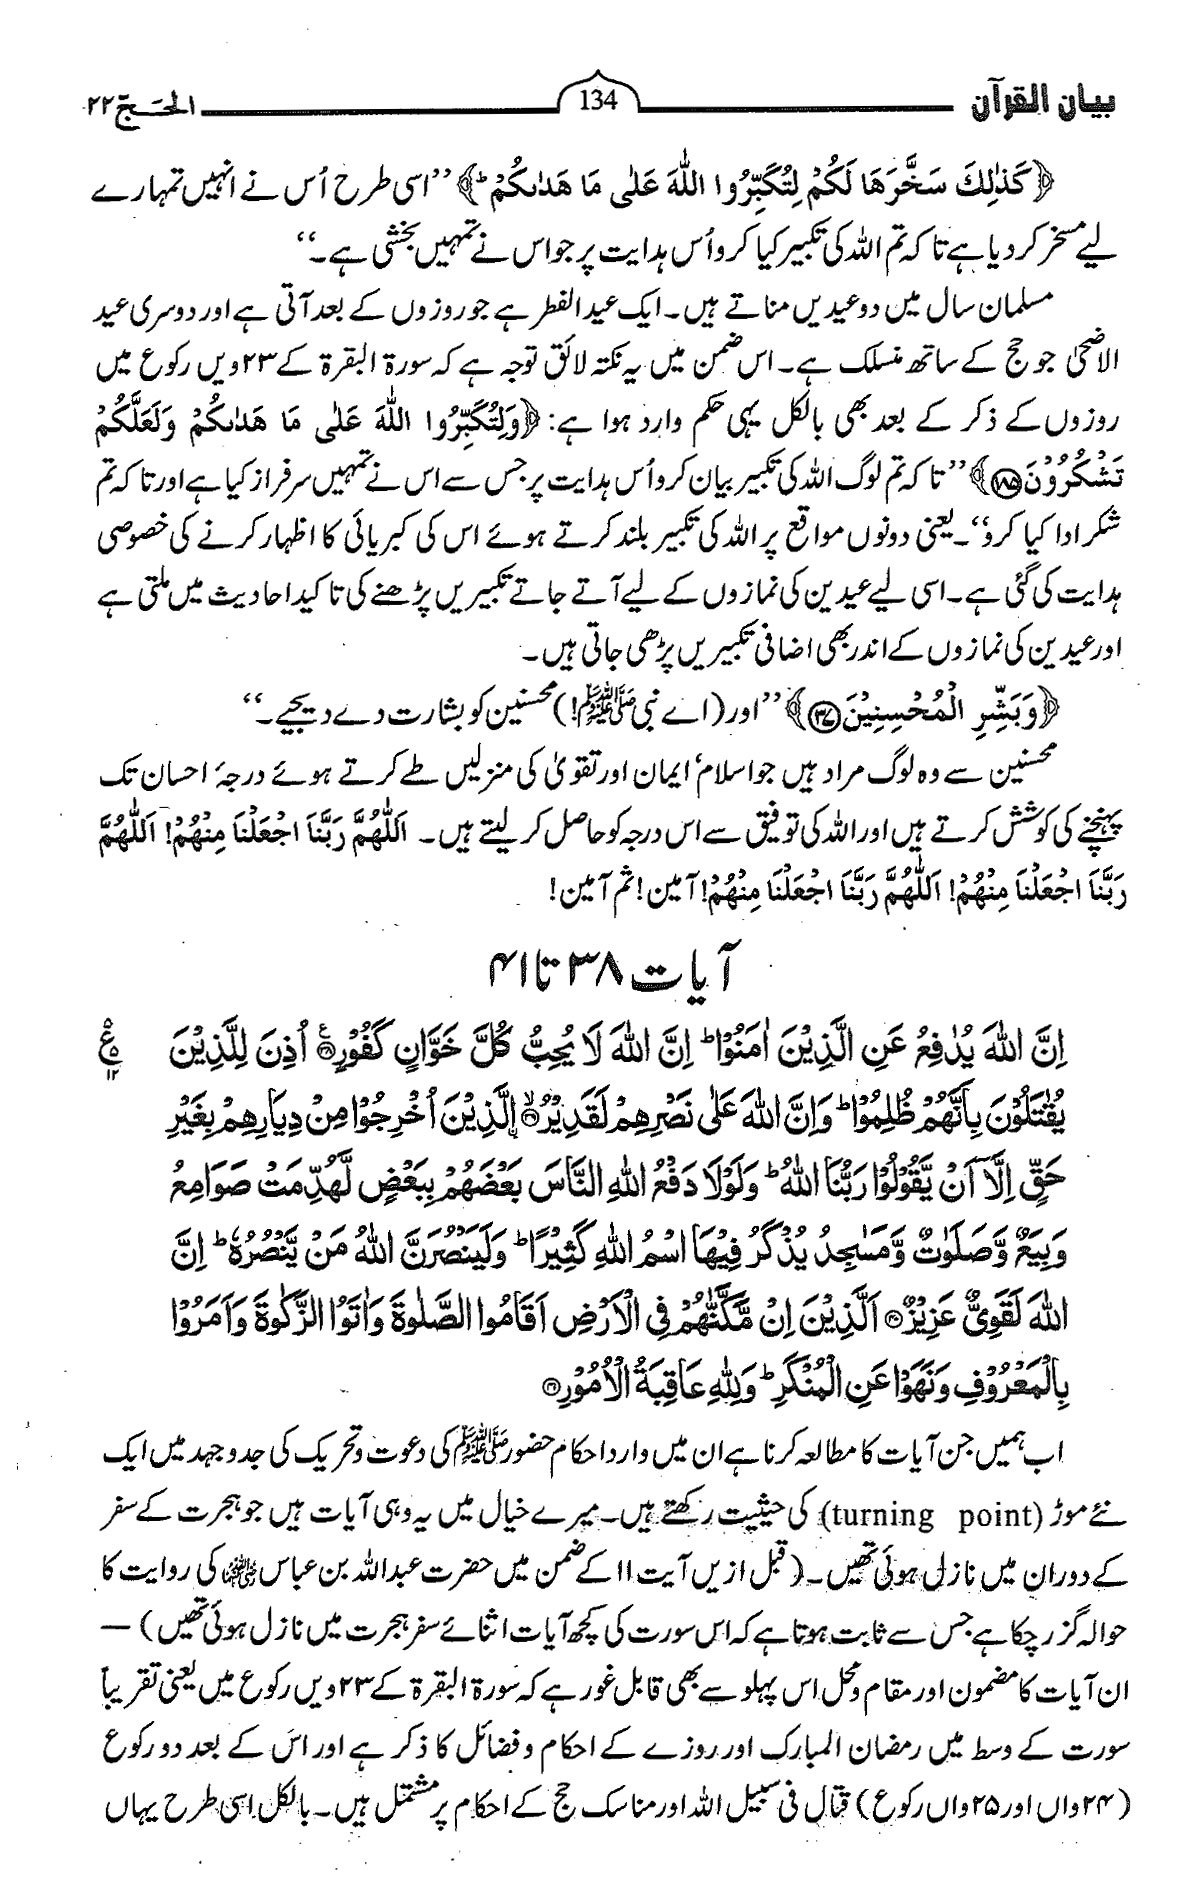 بیان القرآن 134 الحَجّ ۲۲
﴿كَذٰلِكَ سَخَّرَهَا لَكُمْ لِتُكَبِّرُوا اللّٰهَ عَلٰى مَا هَدٰىكُمْ ؕ﴾ ’’اسی طرح اُس نے انہیں تمہارے
لیے مسخر کر دیا ہے تاکہ تم اللہ کی تکبیر کیا کرو اُس ہدایت پر جو اس نے تمہیں بخشی ہے۔‘‘
مسلمان سال میں دو عیدیں مناتے ہیں۔ ایک عید الفطر ہے جو روزوں کے بعد آتی ہے اور دوسری عید
الاضحیٰ جو حج کے ساتھ منسلک ہے۔ اس ضمن میں یہ نکتہ لائق توجہ ہے کہ سورۃ البقرۃ کے ۲۳ ویں رکوع میں
روزوں کے ذکر کے بعد بھی بالکل یہی حکم وارد ہوا ہے: ﴿وَلِتُكَبِّرُوا اللّٰهَ عَلٰى مَا هَدٰىكُمْ وَلَعَلَّكُمْ
تَشْكُرُوْنَ ﴿۱۸۵﴾﴾ ’’تاکہ تم لوگ اللہ کی تکبیر بیان کرو اُس ہدایت پر جس سے اس نے تمہیں سرفراز کیا ہے اور تاکہ تم
شکر ادا کیا کرو‘‘۔ یعنی دونوں مواقع پر اللہ کی تکبیر بلند کرتے ہوئے اس کی کبریائی کا اظہار کرنے کی خصوصی
ہدایت کی گئی ہے۔ اسی لیے عیدین کی نمازوں کے لیے آتے جاتے تکبیریں پڑھنے کی تاکید احادیث میں ملتی ہے
اور عیدین کی نمازوں کے اندر بھی اضافی تکبیریں پڑھی جاتی ہیں۔
﴿وَبَشِّرِ الْمُحْسِنِيْنَ ﴿۳۷﴾﴾ ’’اور (اے نبی ﷺ!) محسنین کو بشارت دے دیجیے۔‘‘
محسنین سے وہ لوگ مراد ہیں جو اسلام‘ ایمان اور تقویٰ کی منزلیں طے کرتے ہوئے درجۂ احسان تک
پہنچنے کی کوشش کرتے ہیں اور اللہ کی توفیق سے اس درجہ کو حاصل کر لیتے ہیں۔ اَللّٰهُمَّ رَبَّنَا اجْعَلْنَا مِنْهُمْ! اَللّٰهُمَّ
رَبَّنَا اجْعَلْنَا مِنْهُمْ! اَللّٰهُمَّ رَبَّنَا اجْعَلْنَا مِنْهُمْ! آمین! ثم آمین!
آیات ۳۸ تا ۴۱
اِنَّ اللّٰهَ يُدٰفِعُ عَنِ الَّذِيْنَ اٰمَنُوْا ؕ اِنَّ اللّٰهَ لَا يُحِبُّ كُلَّ خَوَّانٍ كَفُوْرٍ ﴿۳۸﴾ اُذِنَ لِلَّذِيْنَ ۵ ع ۱۲
يُقٰتَلُوْنَ بِاَنَّهُمْ ظُلِمُوْا ؕ وَاِنَّ اللّٰهَ عَلٰى نَصْرِهِمْ لَقَدِيْرُ ۙ﴿۳۹﴾ اِلَّذِيْنَ اُخْرِجُوْا مِنْ دِيَارِهِمْ بِغَيْرِ
حَقٍّ اِلَّاۤ اَنْ يَّقُوْلُوْا رَبُّنَا اللّٰهُ ؕ وَلَوْلَا دَفْعُ اللّٰهِ النَّاسَ بَعْضَهُمْ بِبَعْضٍ لَّهُدِّمَتْ صَوَامِعُ
وَبِيَعٌ وَّصَلَوٰتٌ وَّمَسٰجِدُ يُذْكَرُ فِيْهَا اسْمُ اللّٰهِ كَثِيْرًا ؕ وَلَيَنْصُرَنَّ اللّٰهُ مَنْ يَّنْصُرُهٗ ؕ اِنَّ
اللّٰهَ لَقَوِيٌّ عَزِيْزٌ ﴿۴۰﴾ اَلَّذِيْنَ اِنْ مَّكَّنّٰهُمْ فِى الْاَرْضِ اَقَامُوا الصَّلٰوةَ وَاٰتَوُا الزَّكٰوةَ وَاَمَرُوْا
بِالْمَعْرُوْفِ وَنَهَوْا عَنِ الْمُنْكَرِ ؕ وَلِلّٰهِ عَاقِبَةُ الْاُمُوْرِ ﴿۴۱﴾
اب ہمیں جن آیات کا مطالعہ کرنا ہے ان میں وارد احکام حضور ﷺ کی دعوت و تحریک کی جدوجہد میں ایک
نئے موڑ (turning point) کی حیثیت رکھتے ہیں۔ میرے خیال میں یہ وہی آیات ہیں جو ہجرت کے سفر
کے دوران میں نازل ہوئی تھیں۔ (قبل ازیں آیت ۱۱ کے ضمن میں حضرت عبداللہ بن عباس رضی اللہ عنہما کی روایت کا
حوالہ گزر چکا ہے جس سے ثابت ہوتا ہے کہ اس سورت کی کچھ آیات اثنائے سفر ہجرت میں نازل ہوئی تھیں) —
ان آیات کا مضمون اور مقام و محل اس پہلو سے بھی قابل غور ہے کہ سورۃ البقرۃ کے ۲۳ ویں رکوع میں یعنی تقریباً
سورت کے وسط میں رمضان المبارک اور روزے کے احکام و فضائل کا ذکر ہے اور اس کے بعد دو رکوع
(۲۴ واں اور ۲۵ واں رکوع) قتال فی سبیل اللہ اور مناسک حج کے احکام پر مشتمل ہیں۔ بالکل اسی طرح یہاں